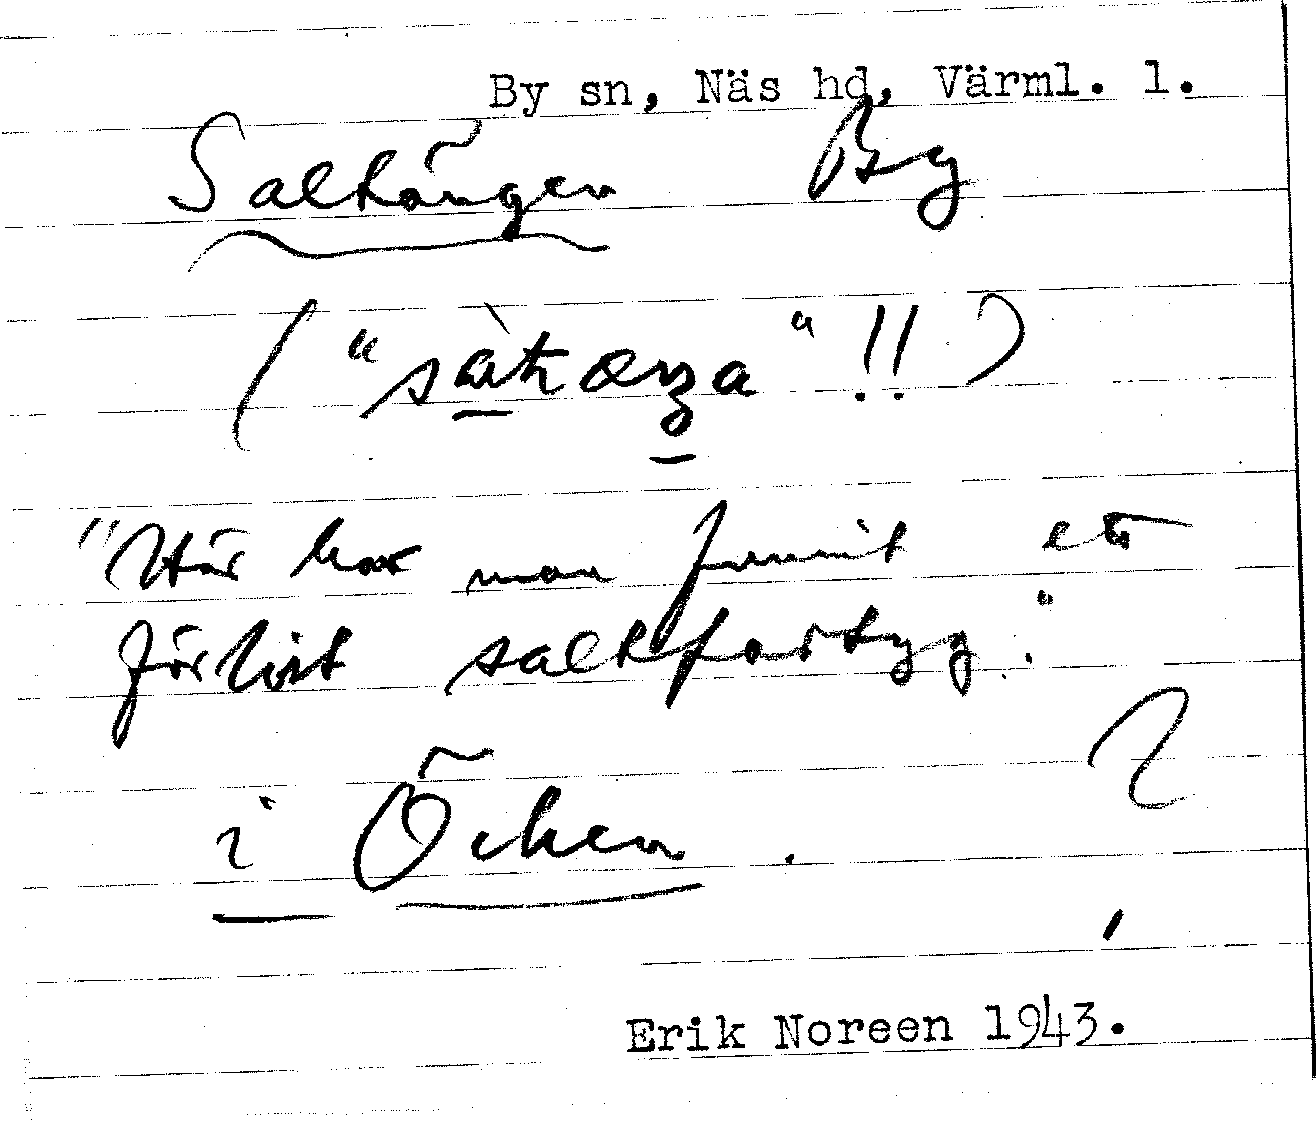 By sn, Näs hd, Värml. l.
Saltängen By
("sàltæŋa" !!)
"Här har man funnit ett
förlist saltfartyg."
i Öchen . ?
Erik Noreen 1943.